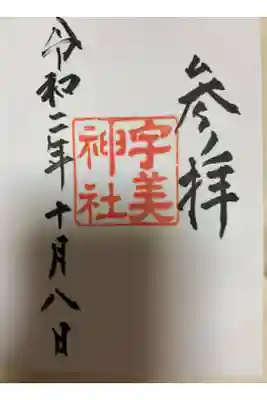 参拝
宇美
神社
令和二年十月八日